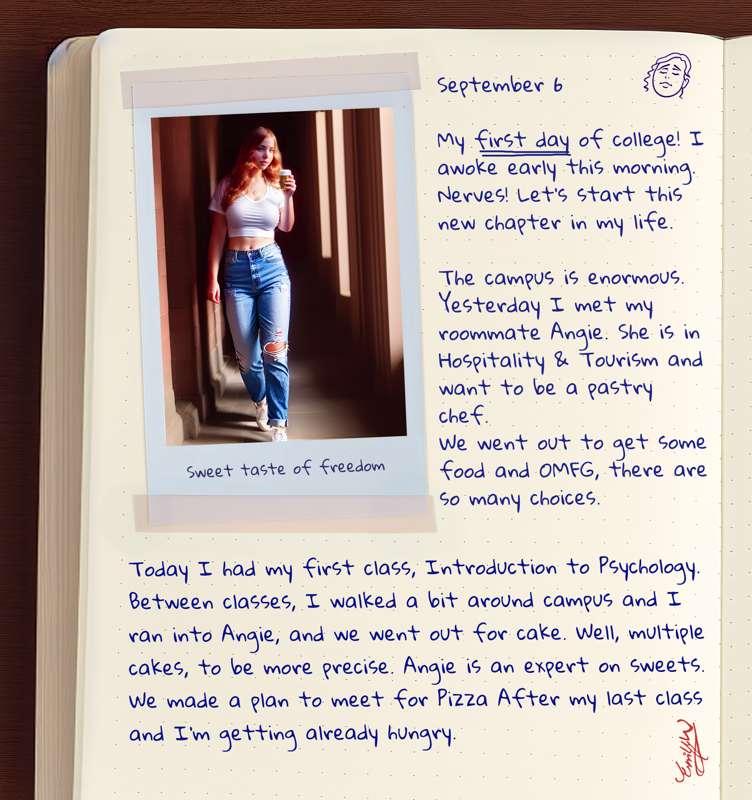 September 6
My first day of college! I
awoke early this morning.
Nerves! Let's start this
new chapter in my life.
The campus is enormous.
Yesterday I met my
roommate Angie. She is in
Hospitality & Tourism and
want to be a pastry
chef.
We went out to get some
food and OMFG, there are
so many choices.
Sweet taste of freedom
Today I had my first class, Introduction to Psychology.
Between classes, I walked a bit around campus and I
ran into Angie, and we went out for cake. Well, multiple
cakes, to be more precise. Angie is an expert on sweets.
We made a plan to meet for Pizza After my last class
and I'm getting already hungry.